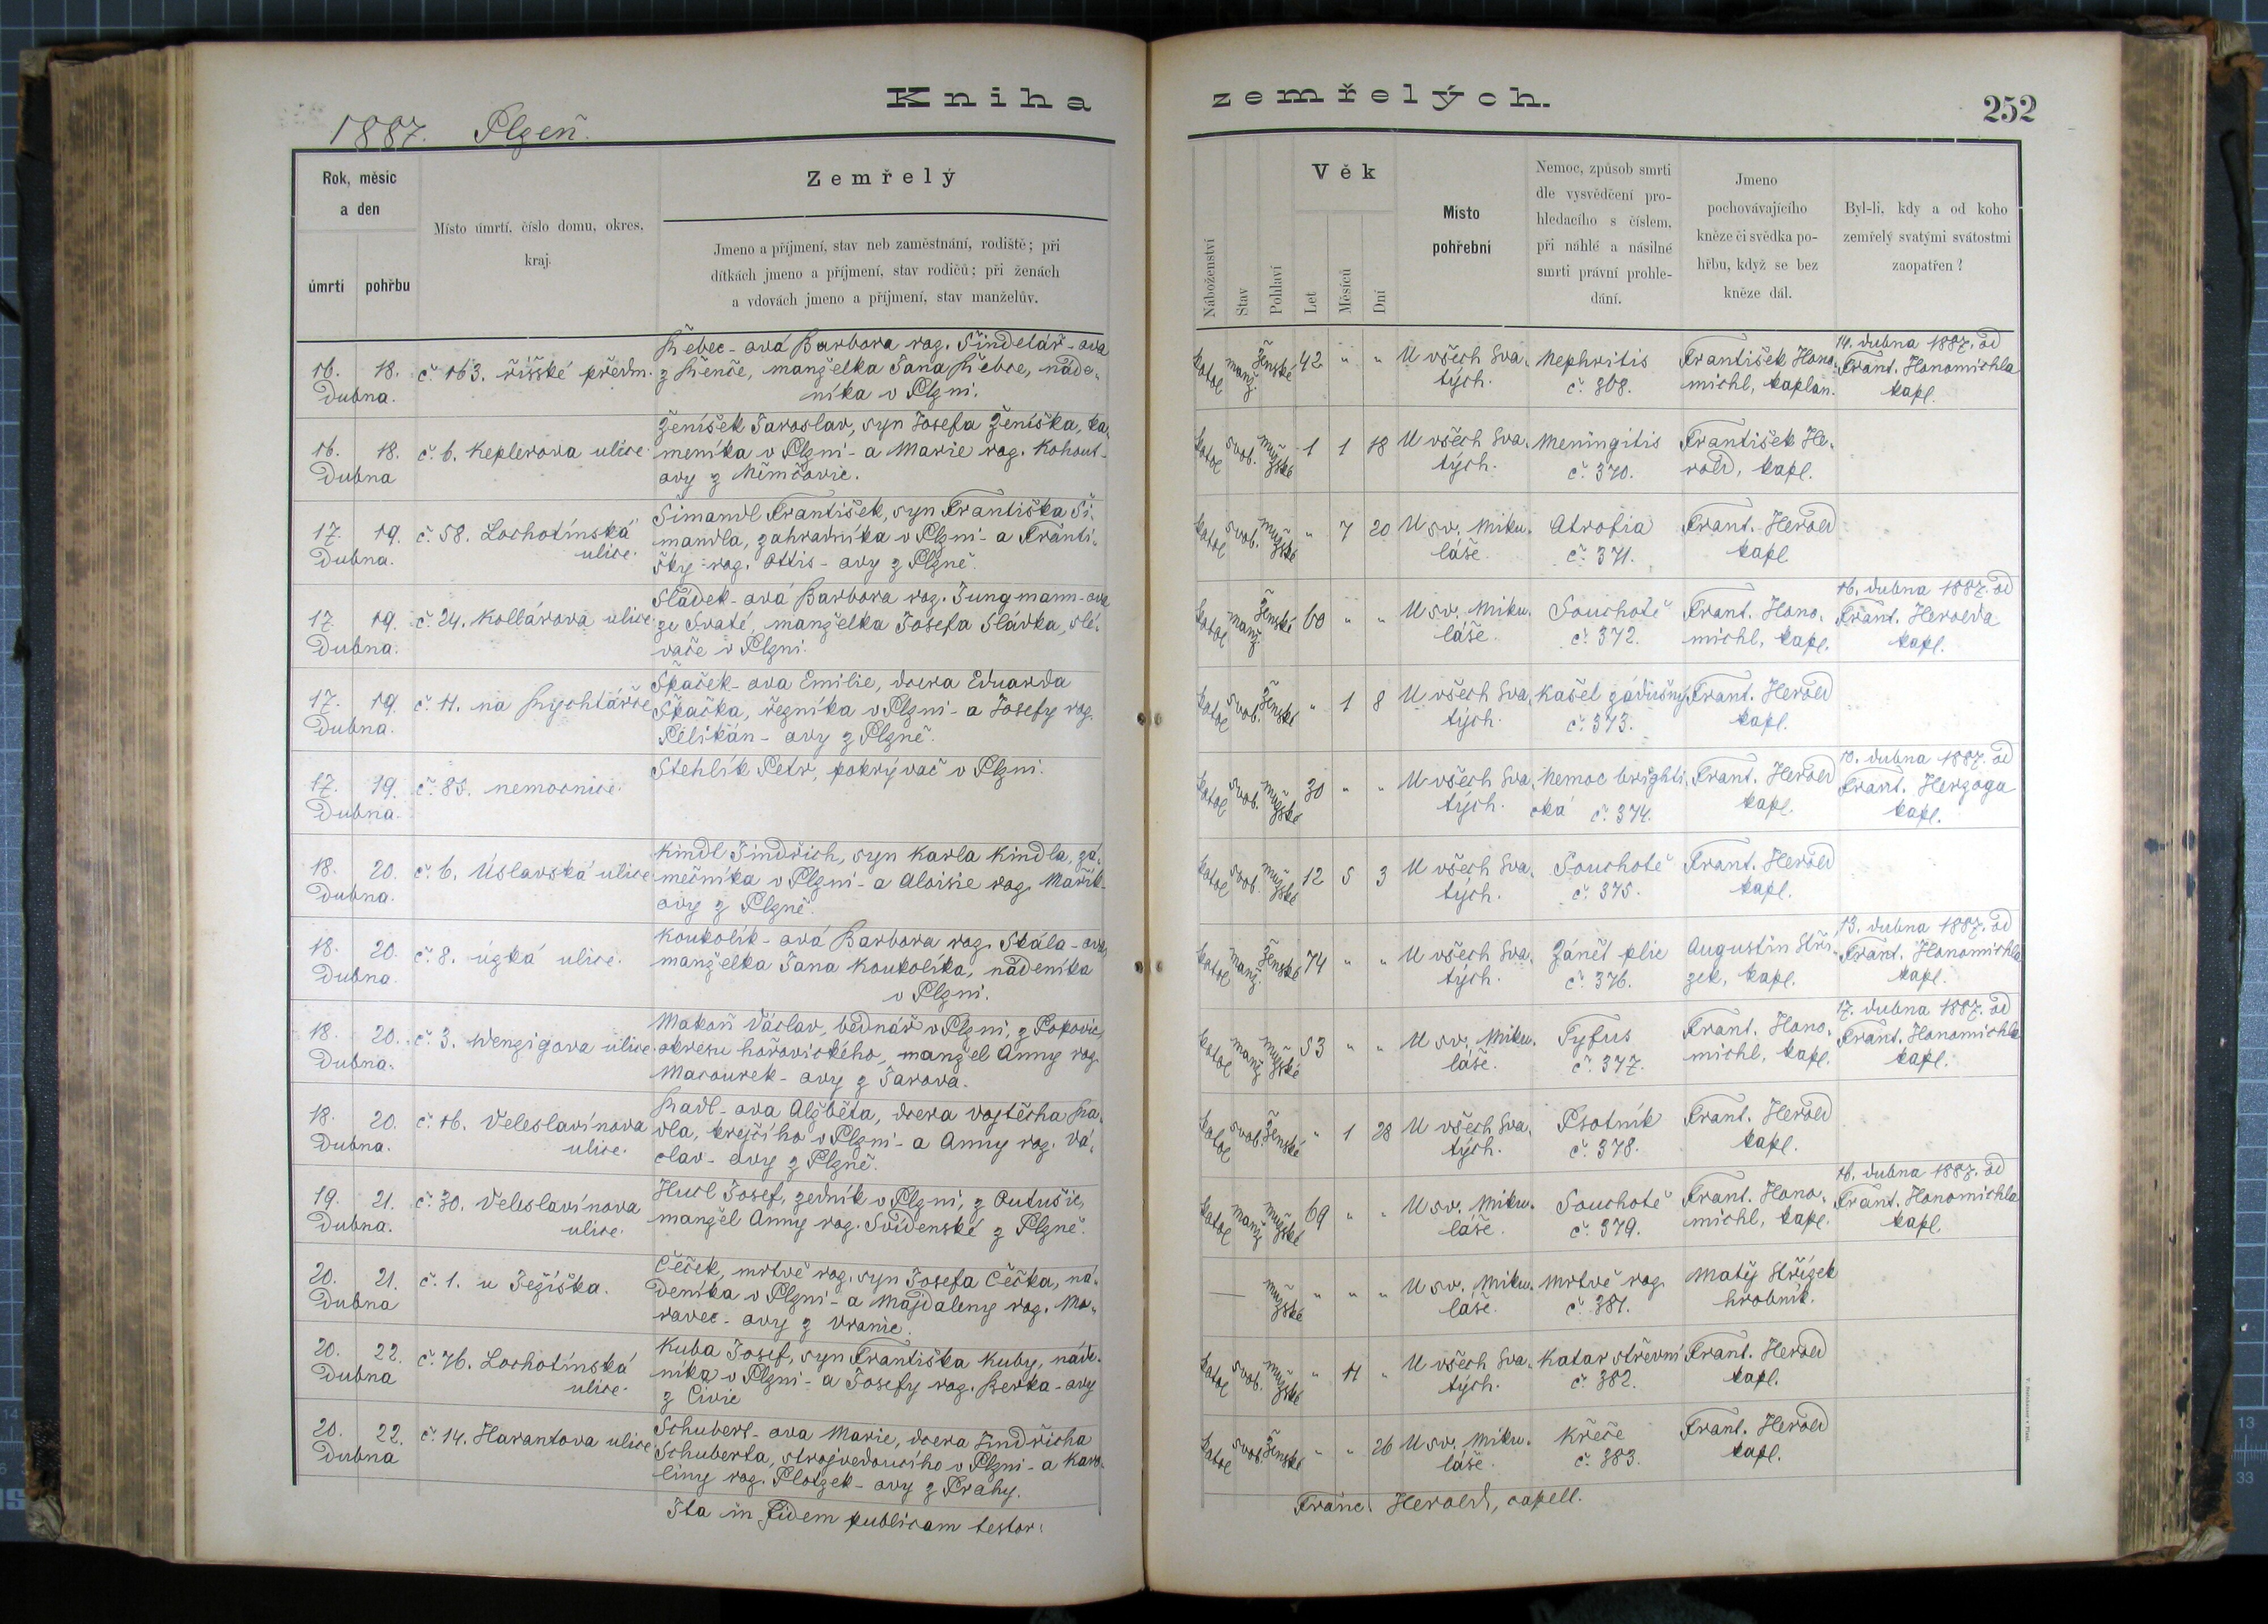 Kniha zemřelých.
252
1887. Plzeň.
Rok, měsíc a den
úmrtí
pohřbu
Místo úmrtí, číslo domu, okres, kraj.
Zemřelý
Jmeno a příjmení, stav neb zaměstnání, rodiště; při
dítkách jmeno a příjmení, stav rodičů; při ženách
a vdovách jmeno a příjmení, stav manželův.
Náboženství
Stav
Pohlaví
Věk
Let
Měsíců
Dní
Místo
pohřební
Nemoc, způsob smrti
dle vysvědčení pro-
hledacího s číslem,
při náhlé a násilné
smrti právní prohle-
dání.
Jmeno
pochovávajícího
kněze či svědka po-
hřbu, když se bez
kněze dál.
Byl-li, kdy a od koho
zemřelý svatými svátostmi
zaopatřen?
16. 18. Dubna.
č. 163. říšské předm.
Řebec-ová Barbora roz. Šindelář-ova
z Řenče, manželka Jana Řebce, náde-
níka v Plzni.
katol manž. Ženské 42 " "
U všech Sva-
tých.
Nephritis
č. 308.
František Hono-
michl, kaplan.
14. dubna 1887. od
Frant. Honomichla
kapl.
16. 18. Dubna
č. 6. Keplerova ulice.
Ženíšek Jaroslav, syn Josefa Ženíška, ka-
meníka v Plzni - a Marie roz. Kohout-
ovy z Němčovic.
katol svob. mužské 1 1 18
U všech Sva-
tých.
Meningitis
č. 370.
František He-
rold, kapl.
17. 19. Dubna.
č. 58. Lochotínská
ulice.
Šimandl František, syn Františka Ši-
mandla, zahradníka v Plzni - a Franti-
šky roz. Ottis-ovy z Plzně.
katol svob. mužské " 7 20
U sv. Miku-
láše.
Atrofia
č. 371.
Frant. Herold
kapl
17. 19. Dubna.
č. 24. Kollárova ulice
Sládek-ová Barbora roz. Jungmann-ova
ze Svaté, manželka Josefa Sládka, slé-
vače v Plzni.
katol manž. Ženské 60 " "
U sv. Miku-
láše.
Souchotě
č. 372.
Frant. Hono-
michl, kapl.
16. dubna 1887. od
Frant. Herolda
kapl.
17. 19. Dubna.
č. 11. na Rychtářce
Špaček-ova Emilie, dcera Eduarda
Špačka, řezníka v Plzni - a Josefy roz.
Pelikán-ovy z Plzně.
katol svob. Ženské " 1 8
U všech Sva-
tých.
Kašel zádušný
č. 373.
Frant. Herold
kapl.
17. 19. Dubna.
č. 85. nemocnice.
Stehlík Petr, pokrývač v Plzni.
katol svob. mužské 30 " "
U všech Sva-
tých.
Nemoc brighti-
cká č. 374.
Frant. Herold
kapl.
10. dubna 1887. od
Frant. Herzoga
kapl.
18. 20. Dubna.
č. 6. Úslavská ulice
Kindl Jindřich, syn Karla Kindla, zá-
mečníka v Plzni - a Aloisie roz. Mařík-
ovy z Plzně.
katol svob. mužské 12 5 3
U všech Sva-
tých.
Souchotě
č. 375.
Frant. Herold
kapl.
18. 20. Dubna
č. 8. úzká ulice.
Koukolík-ová Barbora roz. Skála-ova
manželka Jana Koukolíka, nádeníka
v Plzni.
katol manž. Ženské 74 " "
U všech Sva-
tých.
Zánět plic
č. 376.
Augustin Stří-
zek, kapl.
13. dubna 1887. od
Frant. Honomichla
kapl.
18. 20. Dubna.
č. 3. Wenzigova ulice.
Makoň Václav, bednář v Plzni, z Popovic,
okresu hořovického, manžel Anny roz.
Macourek-ovy z Jarova.
katol manž mužské 53 " "
U sv. Miku-
láše.
Tyfus
č. 377.
Frant. Hono-
michl, kapl.
17. dubna 1887. od
Frant. Honomichla
kapl.
18. 20. Dubna.
č. 16. Veleslavínova
ulice.
Radl-ova Alžběta, dcera Vojtěcha Ra-
dla, krejčího v Plzni - a Anny roz. Vá-
clav-ovy z Plzně.
katol svob. Ženské " 1 28
U všech Sva-
tých.
Psotník
č. 378.
Frant. Herold
kapl.
19. 21. Dubna.
č. 30. Veleslavínova
ulice.
Hucl Josef, zedník v Plzni, z Outušic,
manžel Anny roz. Svídenské z Plzně.
katol manž mužské 69 " "
U sv. Miku-
láše.
Souchotě
č. 379.
Frant. Hono-
michl, kapl.
16. dubna 1887. od
Frant. Honomichla
kapl.
20. 21. Dubna
č. 1. u Ježíška.
Čeček, mrtvě roz. syn Josefa Čečka, ná-
deníka v Plzni - a Majdaleny roz. Mo-
ravec-ovy z Vranic.
— mužské " " "
U sv. Miku-
láše.
Mrtvě roz.
č. 381.
Matěj Střízek
hrobník.
20. 22. Dubna
č. 76. Lochotínská
ulice.
Kuba Josef, syn Františka Kuby, náde-
níka v Plzni - a Josefy roz. Berka-ovy
z Civic
katol svob. mužské " 11 "
U všech Sva-
tých.
Katar střevní
č. 382.
Frant. Herold
kapl.
20. 22. Dubna
č. 14. Harantova ulice
Schubert-ova Marie, dcera Jindřicha
Schuberta, strojvedoucího v Plzni - a Karo-
liny roz. Plotzek-ovy z Prahy.
katol svob. Ženské " " 26
U sv. Miku-
láše.
Křeče
č. 383.
Frant. Herold
kapl.
Ita in fidem publicam testor:
Franc. Herold, capell.